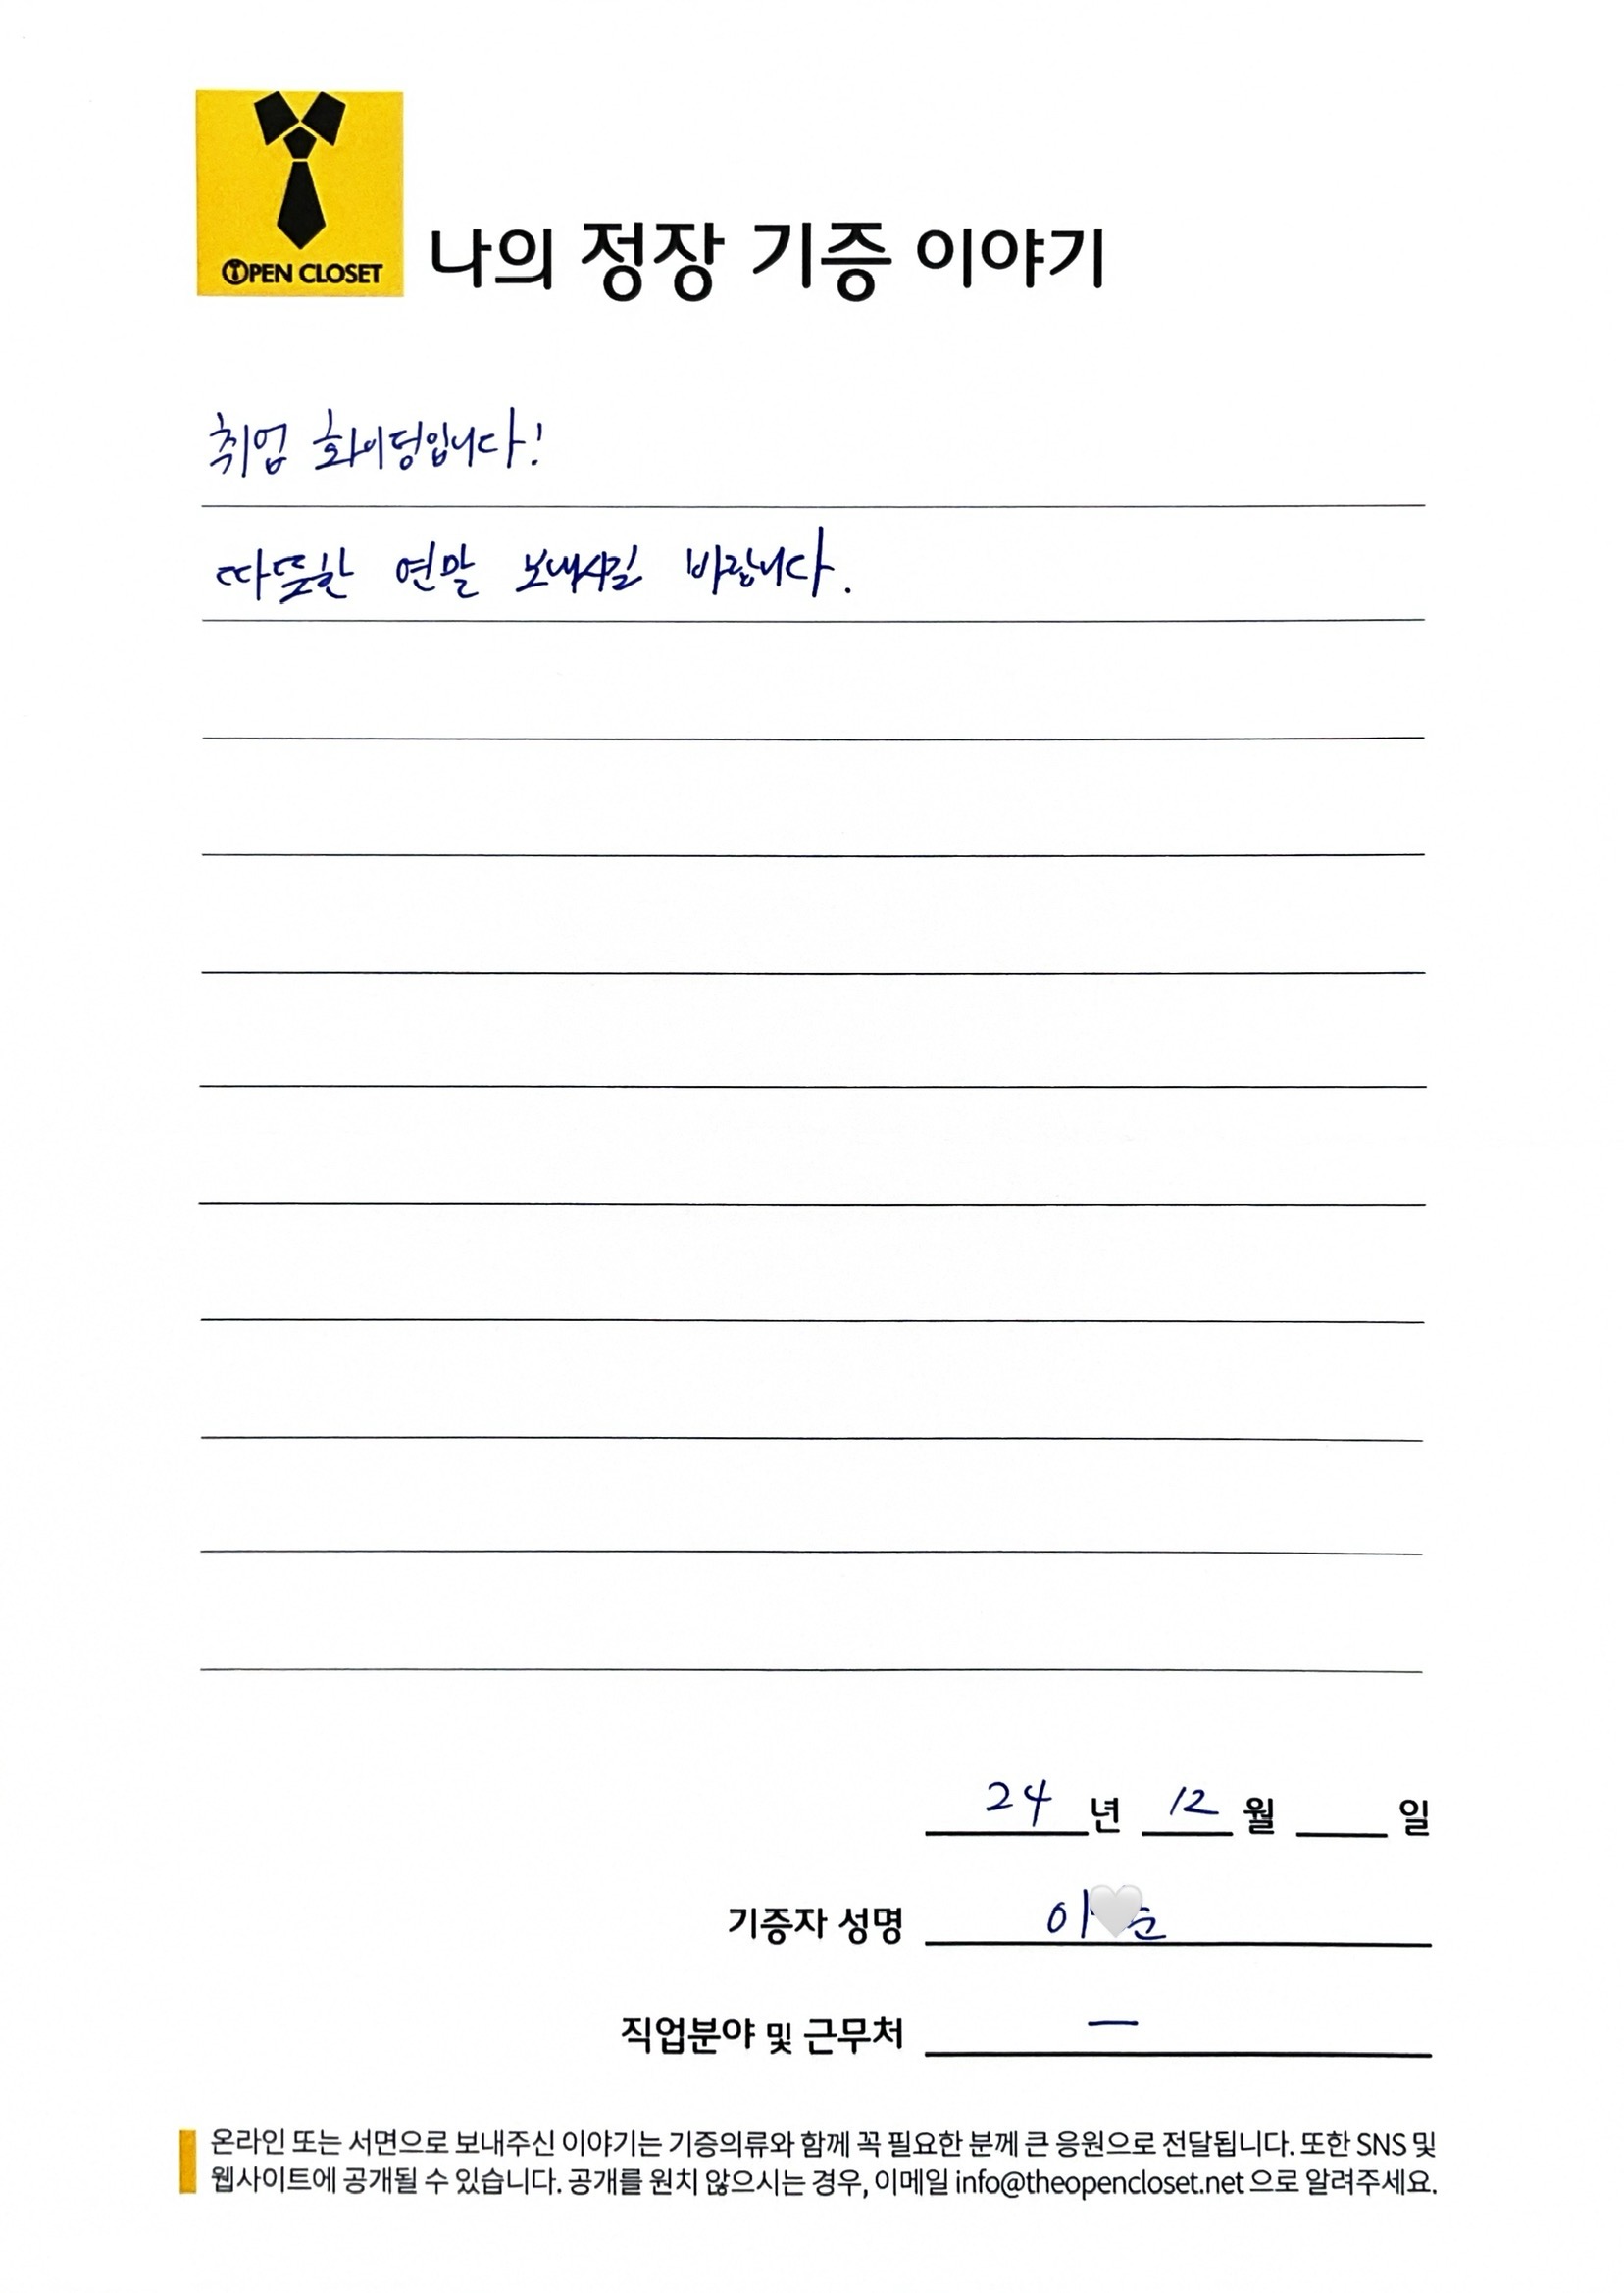 OPEN CLOSET
나의 정장 기증 이야기
취업 화이팅입니다!
따뜻한 연말 보내시길 바랍니다.
24 년 12 월 일
기증자 성명 이🤍순
직업분야 및 근무처 —
온라인 또는 서면으로 보내주신 이야기는 기증의류와 함께 꼭 필요한 분께 큰 응원으로 전달됩니다. 또한 SNS 및
웹사이트에 공개될 수 있습니다. 공개를 원치 않으시는 경우, 이메일 info@theopencloset.net 으로 알려주세요.